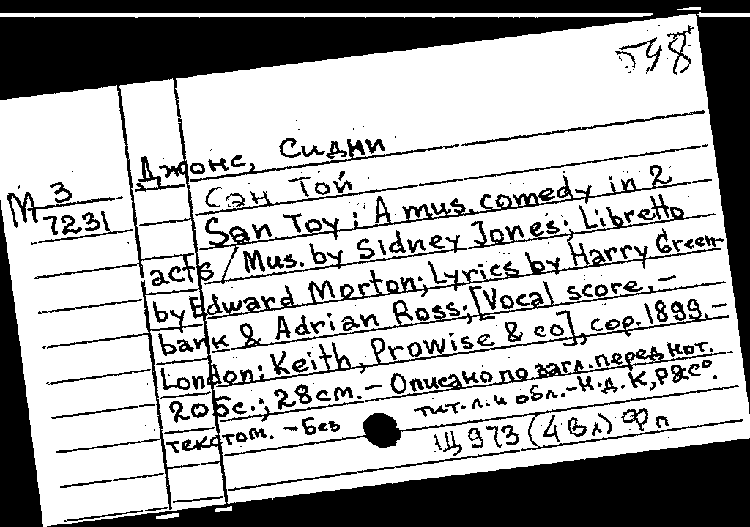 548
Джонс, Сидни
М 3
7231
Сан Той
San Toy : A mus. comedy in 2
acts / Mus. by Sidney Jones; Libretto
by Edward Morton; Lyrics by Harry Green-
bank & Adrian Ross; [Vocal score. —
London: Keith, Prowise & co], cop. 1899. —
206 с.; 28 cm. — Описано по загл. перед нот.
текстом. — Без тит. л. и обл. — K, P & Cº.
Щ 973 (4 Вл) Фп